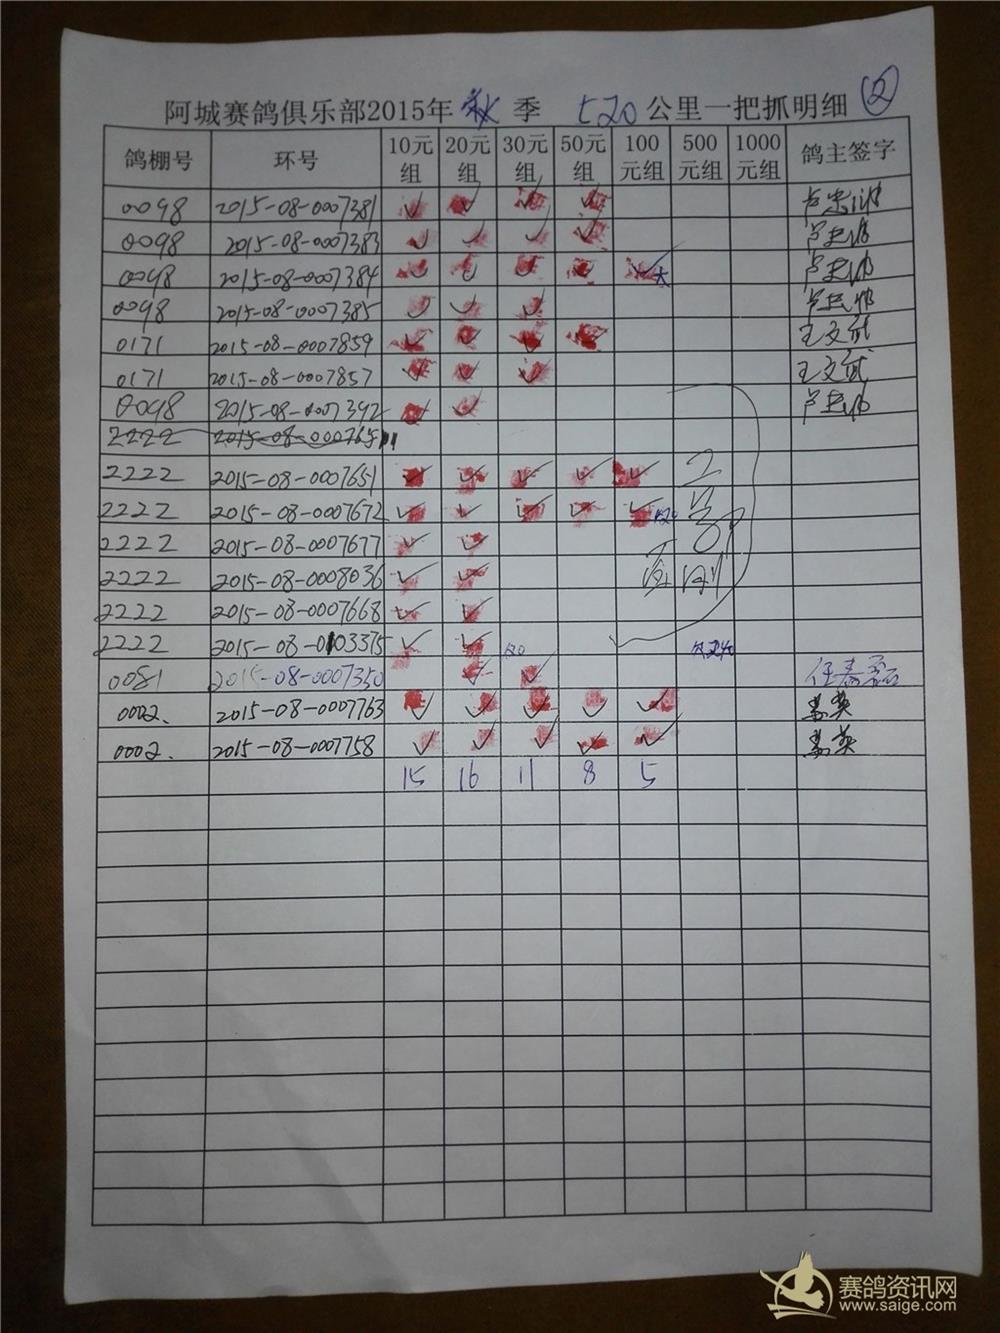 阿城赛鸽俱乐部2015年 秋 季 520 公里一把抓明细 ②
鸽棚号 环号 10元组 20元组 30元组 50元组 100元组 500元组 1000元组 鸽主签字
0098 2015-08-0007381 ✓ ✓ ✓ ✓
0098 2015-08-0007383 ✓ ✓ ✓ ✓
0098 2015-08-0007384 ✓ ✓ ✓ ✓ ✓
0098 2015-08-0007385 ✓ ✓ ✓
0171 2015-08-0007859 ✓ ✓ ✓ ✓ 王文武
0171 2015-08-0007857 ✓ ✓ ✓ 王文武
0098 2015-08-0007392 ✓ ✓
2222 2015-08-0007651
2222 2015-08-0007651 ✓ ✓ ✓ ✓ ✓
2222 2015-08-0007672 ✓ ✓ ✓ ✓ ✓
2222 2015-08-0007677 ✓ ✓
2222 2015-08-0008036 ✓ ✓
2222 2015-08-0007668 ✓ ✓
2222 2015-08-0103375 ✓ ✓
0081 2015-08-0007350 ✓ ✓
0002. 2015-08-0007763 ✓ ✓ ✓ ✓ ✓
0002. 2015-08-0007758 ✓ ✓ ✓ ✓ ✓
15 16 11 8 5
赛鸽资讯网
www.saige.com